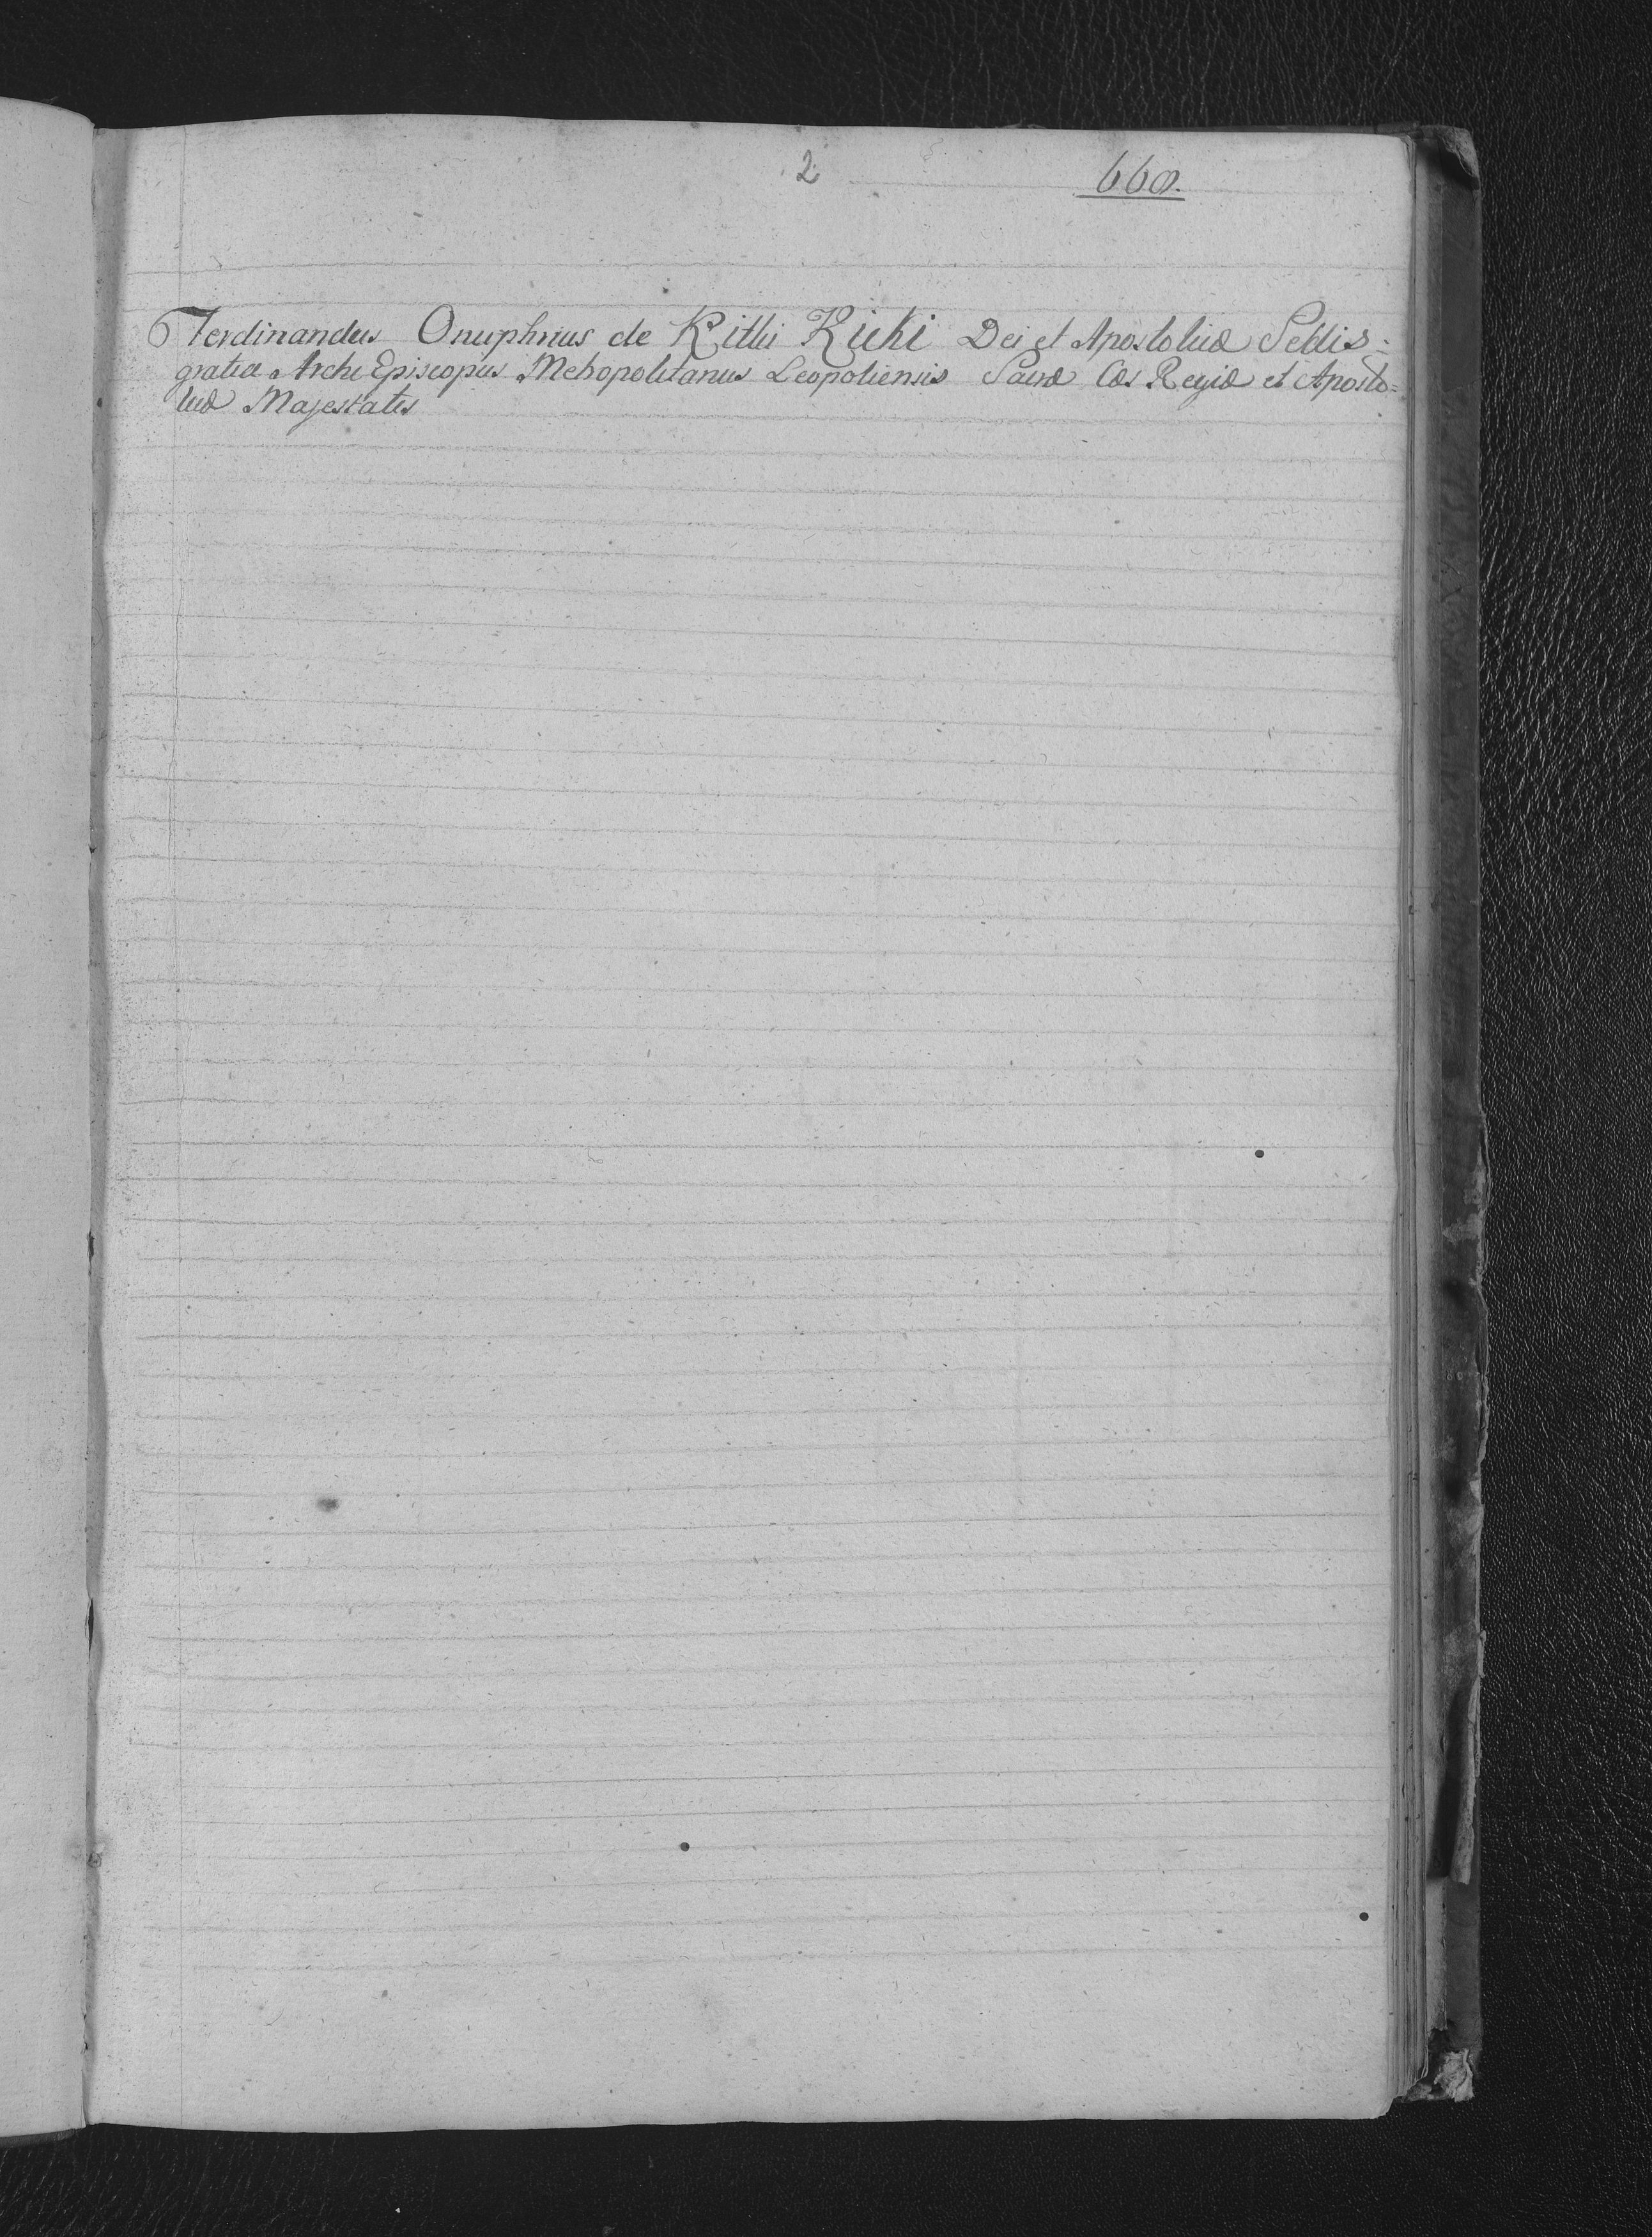 2
668.
Ferdinandus Onuphrius de Kitki Kicki Dei et Apostolicæ Sedis
gratia Archi Episcopus Metropolitanus Leopoliensis Sacræ Cæs Regiæ et Aposto=
licæ Majestatis